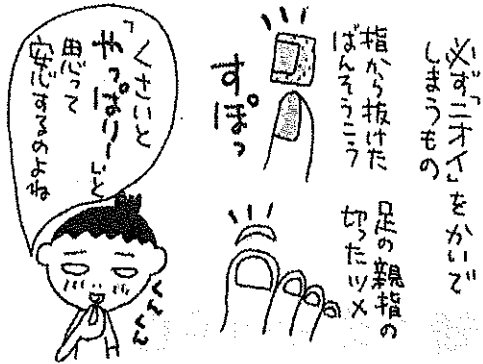 必ず「ニオイ」をかいで
しまうもの
指から抜けた
ばんそうこう
すぽっ
足の親指の
切ったツメ
「くさいと
やっぱりー」と
思って
安心するのよね
くんくん